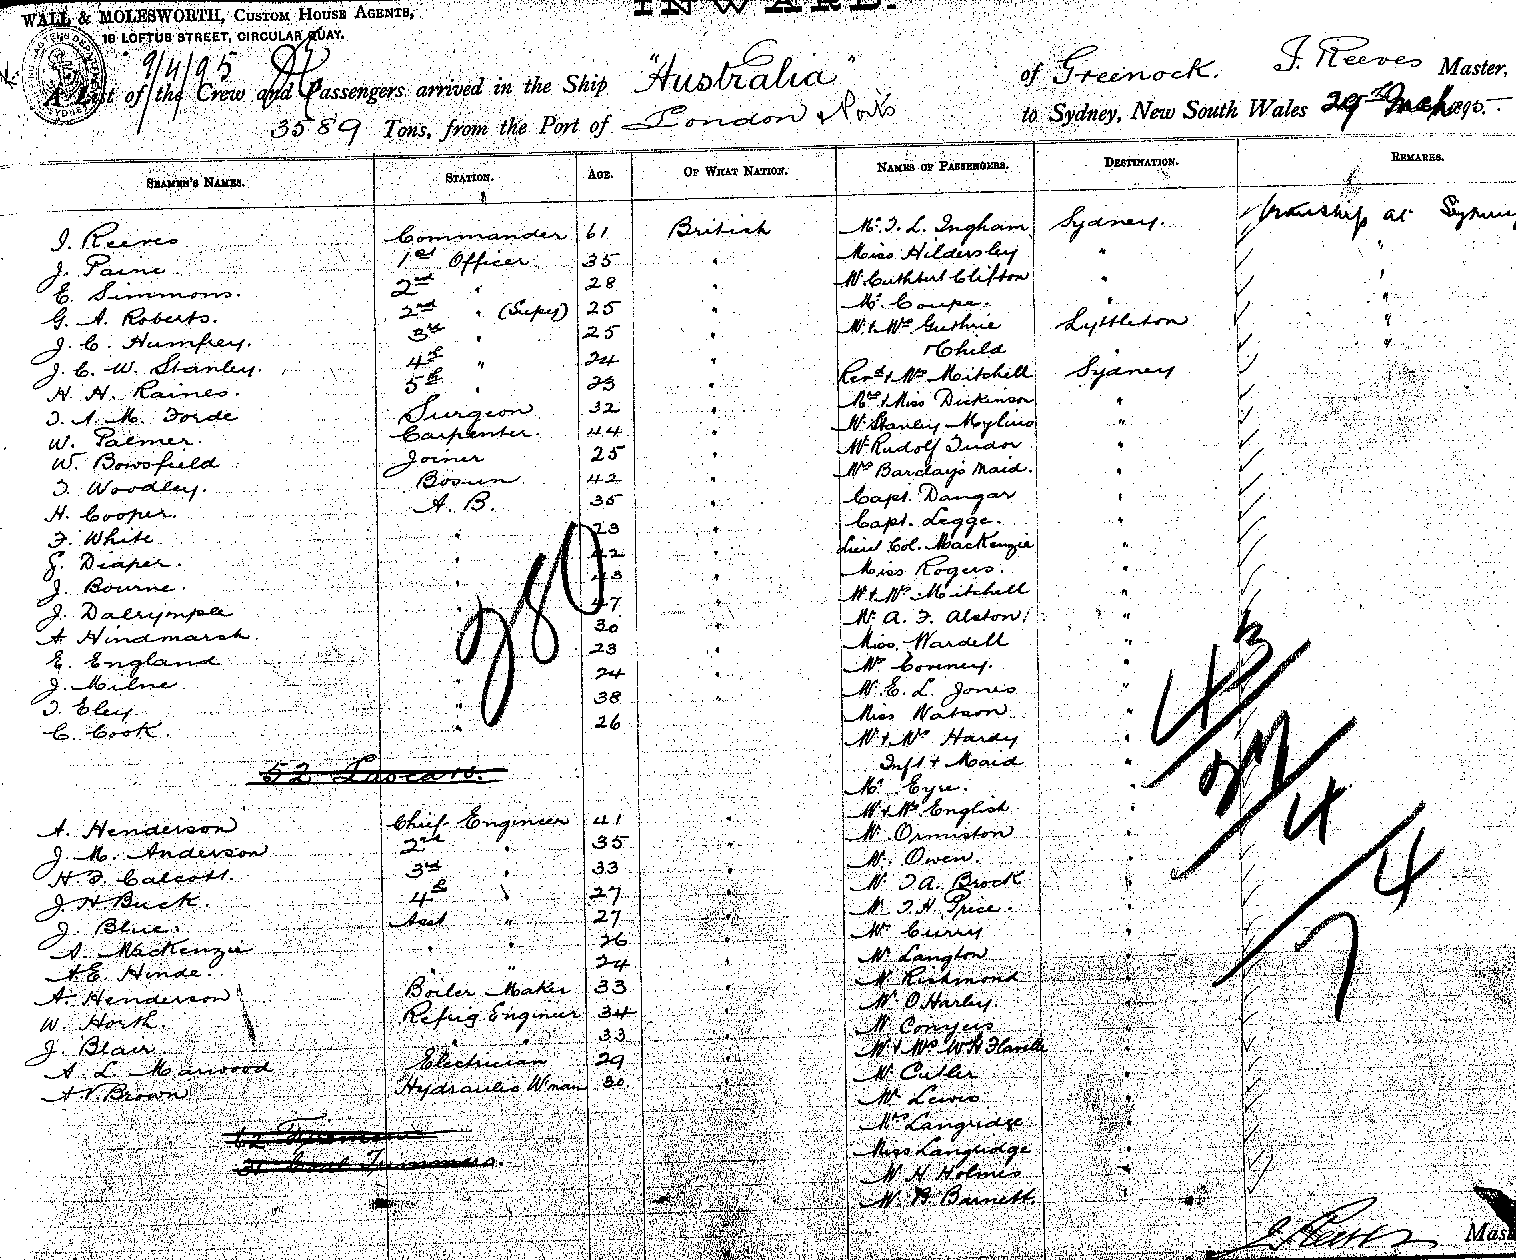 INWARD.
WALL & MOLESWORTH, CUSTOM HOUSE AGENTS,
16 LOFTUS STREET, CIRCULAR QUAY.
9/4/95
A List of the Crew and Passengers arrived in the Ship "Australia" of Greenock. J. Reeves Master,
3589 Tons, from the Port of London & Ports to Sydney, New South Wales 29th Mch 1895.
SEAMEN'S NAMES. STATION. AGE. OF WHAT NATION. NAMES OF PASSENGERS. DESTINATION. REMARKS.
J. Reeves Commander 61 British Mr. T. L. Ingham Sydney. Tranship at Sydney
J. Paine 1st Officer 35 " Miss Hildersley " "
E. Simmons. 2nd " 28 " Mr Cuthbert Clifton "
G. A. Roberts. 2nd " (Supy) 25 " Mr. Coupe. " "
J. C. Humfrey. 3rd " 25 " Mr & Mrs Guthrie Lyttleton "
J. C. W. Stanley. 4th " 24 " & Child "
H. H. Raines. 5th " 23 " Revd & Mrs Mitchell Sydney
T. A. M. Forde Surgeon 32 " Mrs & Miss Dickenson "
W. Palmer. Carpenter. 44 " Mr Stanley "
W. Bowsfield Joiner 25 " Mr Rudolf Tudor "
T. Woodley. Bosun 42 " Mrs Barclay's Maid. "
H. Cooper. A. B. 35 " Capt. Dangar "
F. White " 23 " Capt. Legge. "
G. Diaper. " 42 " Lieut Col. MacKenzie "
J. Bourne. " " Miss Rogers. "
J. Dalrymple " " Mr & Mrs Mitchell "
A Hindmarsh. " 30 " Mr. A. F. Alston. "
E. England " 23 " Miss Wardell "
J. Milne " 24 " Mr "
T. Eley " 38 " Mr. E. L. Jones "
C. Cook. " 26 Miss Watson "
280
Mr & Mrs Hardy "
52 Lascars. Inft & Maid "
Mr. Eyre.
A. Henderson Chief Engineer 41 " Mr & Mrs English
J. M. Anderson 2nd " 35 " Mr. Ormiston
H. F. Calcott. 3rd " 33 " Mr. Owen.
J. H Buck. 4th " 27 " Mr. T. A. Brock
J. Blue. Asst " 27 " Mr. T. H. Price.
A. MacKenzie " " 26 " Mr Curry
A. E. Hinde. " " 24 " Mr Langton
A. Henderson Boiler Maker 33 " Mr Richmond
W. Horth. Refrig Engineer 34 " Mr O'Harley.
J. Blair " " 33 " Mr Conyers
A. L. Marwood Electrician 29 " Mr & Mrs W H Flavelle
A V. Brown Hydraulic Wman 30 " Mr. Cutler
Mr Lewis
62 Firemen Mrs Langridge
31 Coal Trimmers. Miss Langridge
Mr H Holmes
Mr. H Barnett
43
27
4
4
7
J. Reeves